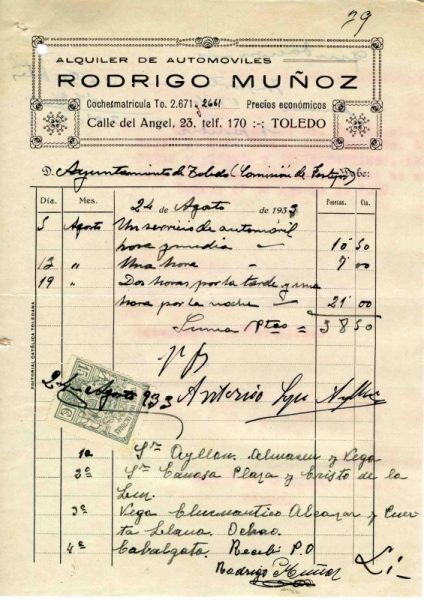 29
ALQUILER DE AUTOMOVILES
RODRIGO MUÑOZ
Cochesmatricula To. 2.671 - 2661 Precios económicos
Calle del Angel, 23, telf. 170 :-: TOLEDO
D. Ayuntamiento de Toledo (Comisión de Festejos) Debe:
Día. Mes. 24 de Agosto de 1933 Pesetas. Cts.
5 Agosto Un servicio de automóvil
hora y media 10 50
12 " Una hora " 7 00
19 " Dos horas por la tarde y una
hora por la noche 21 00
Suma Ptas = 38 50
24 Agosto 933 Antonio
EDITORIAL CATÓLICA TOLEDANA
1º Sr Ayllon. Almacen y Vega
2º Sr Canosa Plaza y Cristo de la
Luz.
3º Vega Alcazar y Puer
ta Llana. Ochao.
4º Cabalgata. Recibí P.O
Rodrigo Muñoz